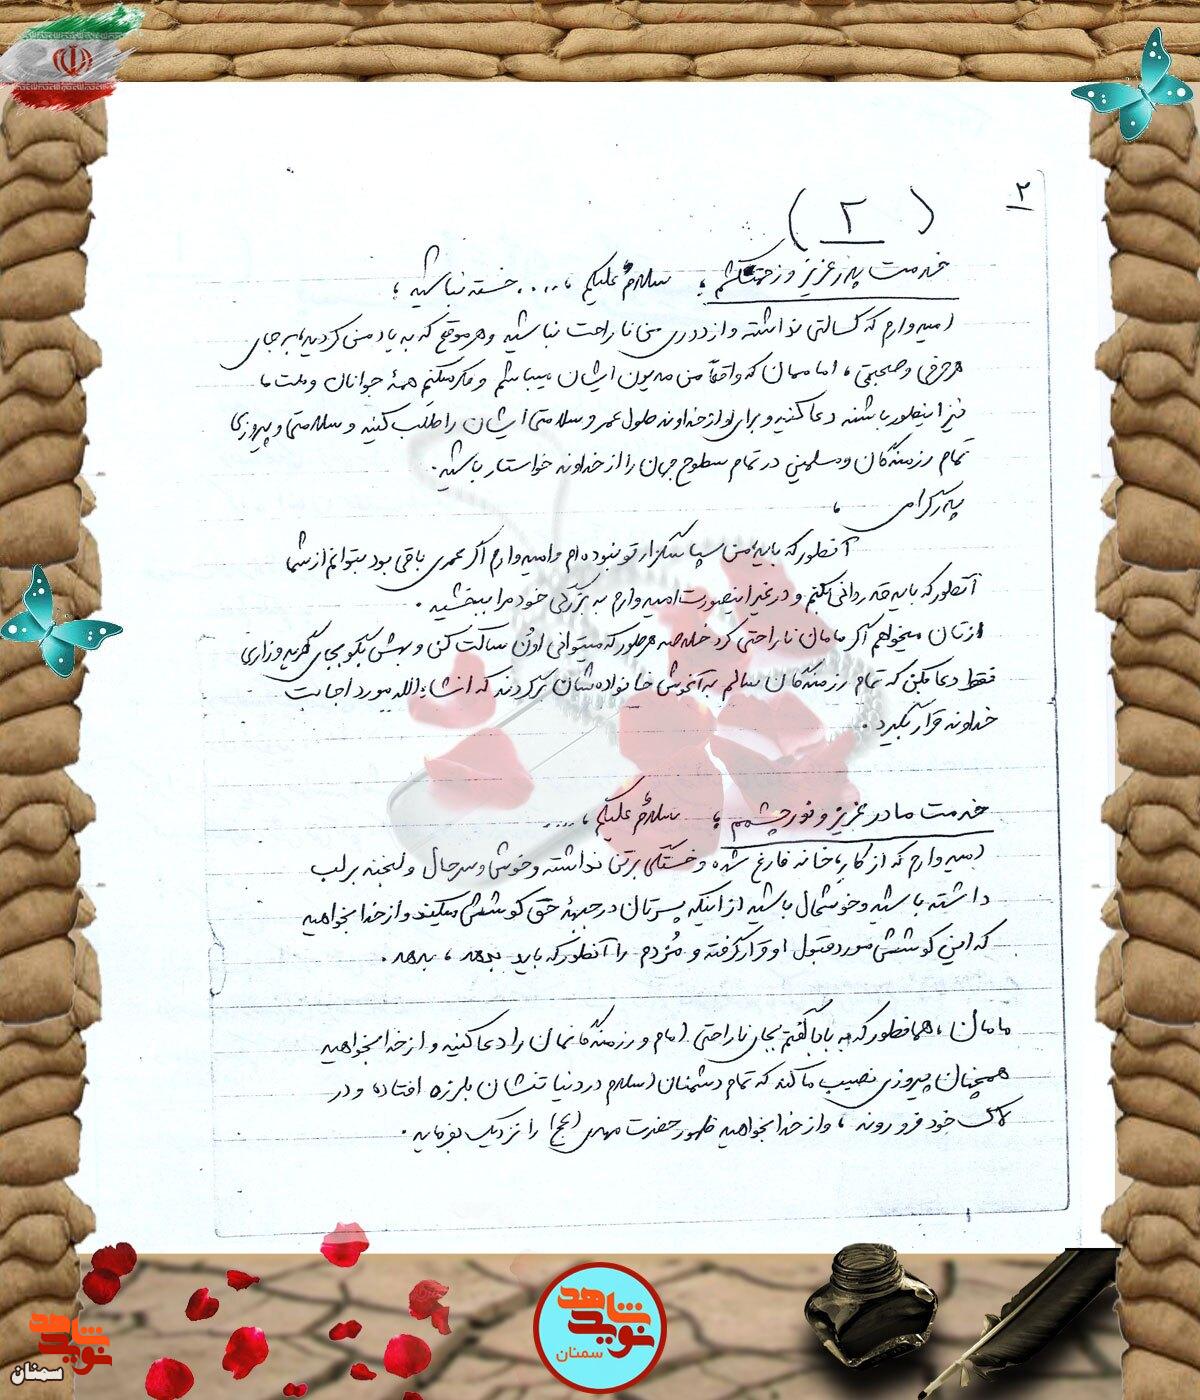 ۲
(۲)
خدمت پدر عزیز و زحمتکشم ، سلامٌ علیکم ، .... خسته نباشید ،
امیدوارم که کسالتی نداشته و از دوری من ناراحت نباشید و هر موقع که به یاد من کردید، به جای
هر حرفی و صحبتی ، اماممان که واقعاً من مدیون ایشان میباشم و فکر میکنم همهٔ جوانان و ملت ما
نیز اینطور باشند دعا کنید و برای او از خداوند طول عمر و سلامتی ایشان را طلب کنید و سلامتی و پیروزی
تمام رزمندگان و مسلمین در تمام سطوح جهان را از خداوند خواستار باشید.
پدر گرامی ،
آنطور که باید من سپاسگزار تو نبوده‌ام و امیدوارم اگر عمری باقی بود بتوانم از شما
آنطور که باید قدردانی بکنم و در غیر اینصورت امیدوارم به بزرگی خود مرا ببخشید .
ازتان میخواهم اگر مامان ناراحتی کرد خلاصه هر طور که میتوانی اون ساکت کن و بهش بگو بجای گریه و زاری
فقط دعا بکن که تمام رزمندگان سالم به آغوش خانواده‌شان برگردند که انشاءالله مورد اجابت
خداوند قرار بگیرد .
خدمت مادر عزیز و نور چشمم ، سلامٌ علیکم ، ....
امیدوارم که از کار خانه فارغ شده و خستگی بر تن نداشته و خوش و سرحال و لبخند بر لب
داشته باشید و خوشحال باشید از اینکه پسرتان در جبههٔ حق کوشش میکند و از خدا بخواهید
که این کوشش مورد قبول او قرار گرفته و مُزدم را آنطور که باید بدهد ، بدهد .
مامان ، همانطور که به بابا گفتم بجای ناراحتی امام و رزمندگانمان را دعا کنید و از خدا بخواهید
همچنان پیروزی نصیب ما کند که تمام دشمنان اسلام در دنیا تنشان بلرزه افتاده و در
لاک خود فرو روند ، و از خدا بخواهید ظهور حضرت مهدی (عج) را نزدیک بفرماید .
نوید شاهد
سمنان
نوید شاهد
سمنان